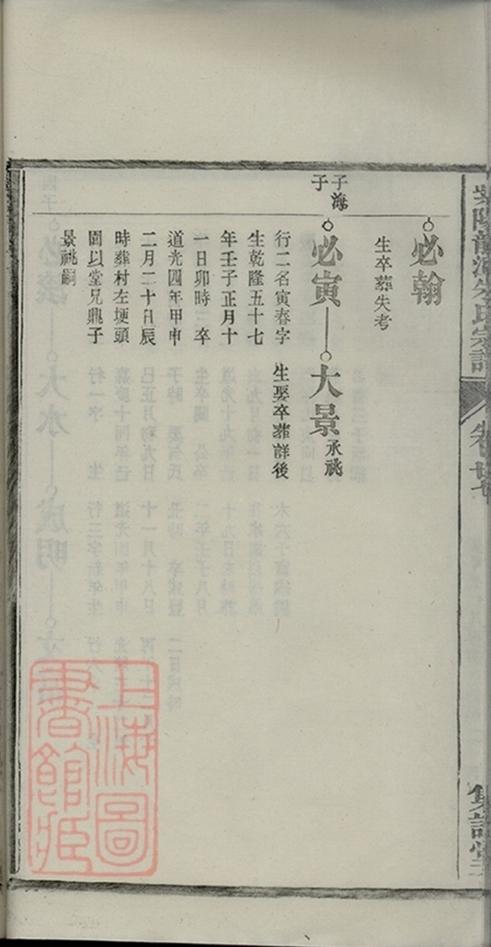 氏宗譜
必翰
生卒葬失考
子海
子
必寅
行二名寅春字
生乾隆五十七
年壬子正月十
一日卯時　卒
道光四年甲申
二月二十日辰
時葬村左埂頭
圖以堂兄鼎子
景祧嗣
大景承祧
生娶卒葬詳後
上海圖
書館藏